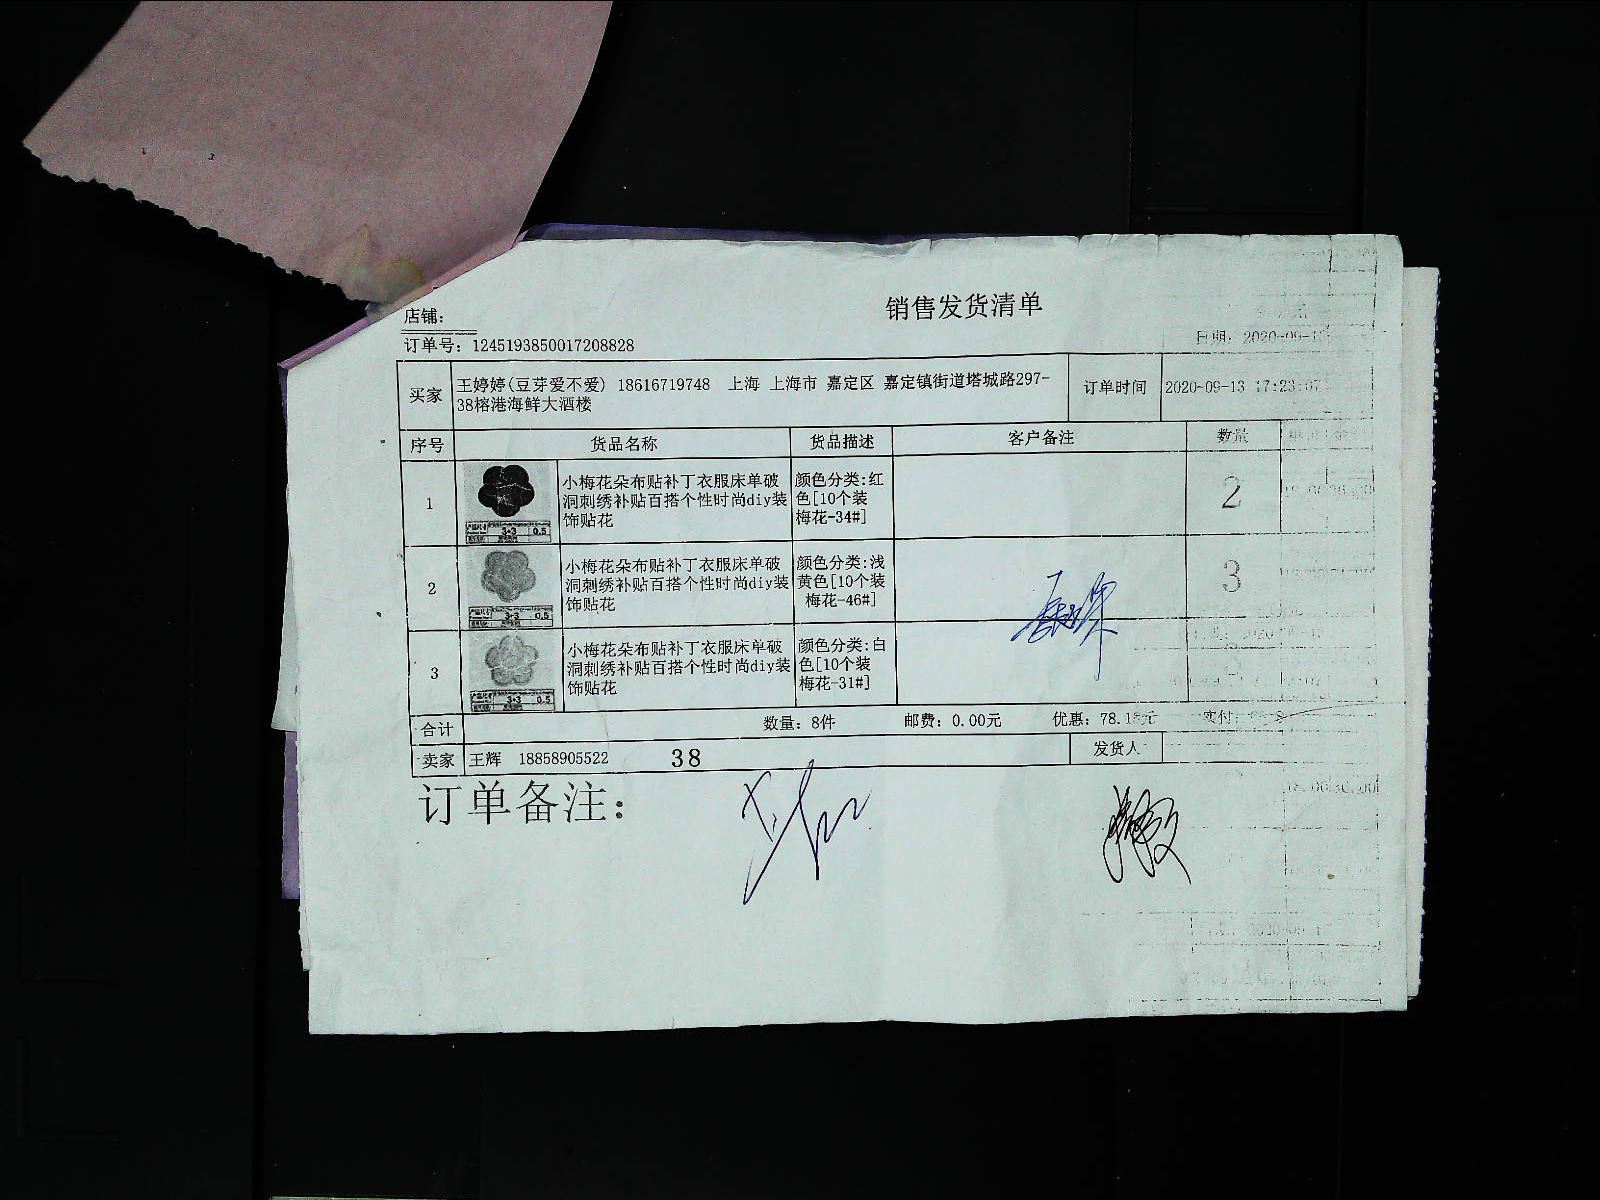 销售发货清单
店铺：
日期：
订单号：1245193850017208828
买家 王婷婷(豆芽爱不爱) 18616719748 上海 上海市 嘉定区 嘉定镇街道塔城路297-
38榕港海鲜大酒楼
订单时间 2020-09-13 17:23:07
序号 货品名称 货品描述 客户备注 数量
1 小梅花朵布贴补丁衣服床单破
洞刺绣补贴百搭个性时尚diy装
饰贴花
颜色分类:红
色[10个装
梅花-34#]
2
3*3 0.5
2 小梅花朵布贴补丁衣服床单破
洞刺绣补贴百搭个性时尚diy装
饰贴花
颜色分类:浅
黄色[10个装
梅花-46#]
3
3*3 0.5
3 小梅花朵布贴补丁衣服床单破
洞刺绣补贴百搭个性时尚diy装
饰贴花
颜色分类:白
色[10个装
梅花-31#]
3*3 0.5
合计 数量：8件 邮费：0.00元 优惠：78.15元 实付：
卖家 王辉 18858905522 38 发货人
订单备注：